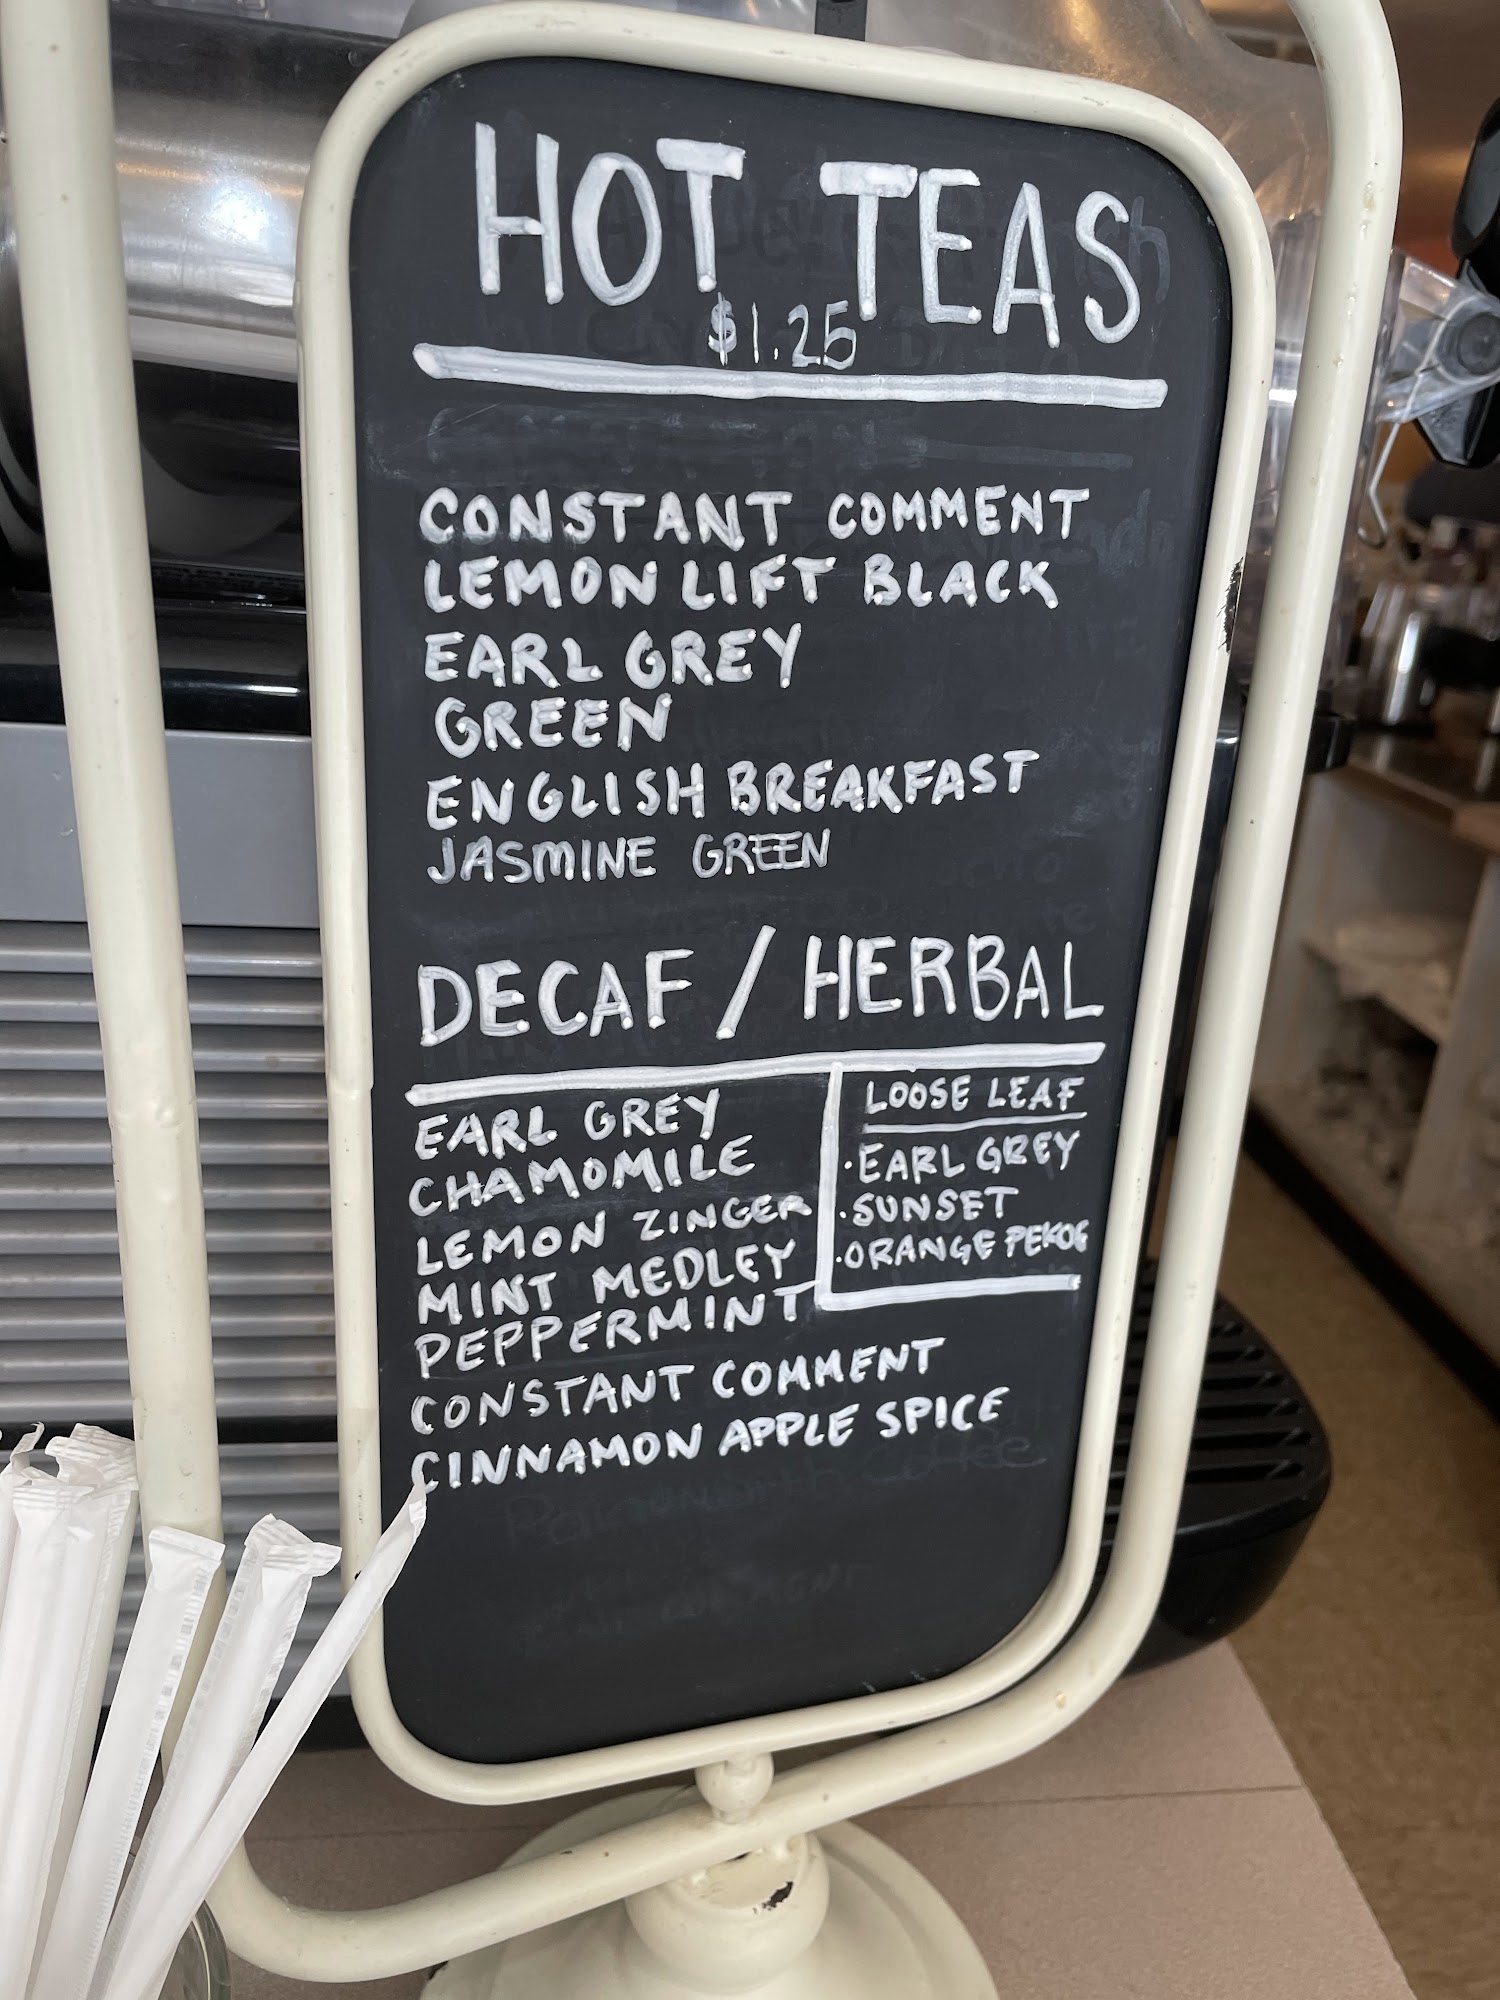 HOT TEAS
$1.25
CONSTANT COMMENT
LEMON LIFT BLACK
EARL GREY
GREEN
ENGLISH BREAKFAST
JASMINE GREEN
DECAF / HERBAL
EARL GREY
CHAMOMILE
LEMON ZINGER
MINT MEDLEY
PEPPERMINT
CONSTANT COMMENT
CINNAMON APPLE SPICE
LOOSE LEAF
·EARL GREY
·SUNSET
·ORANGE PEKOE